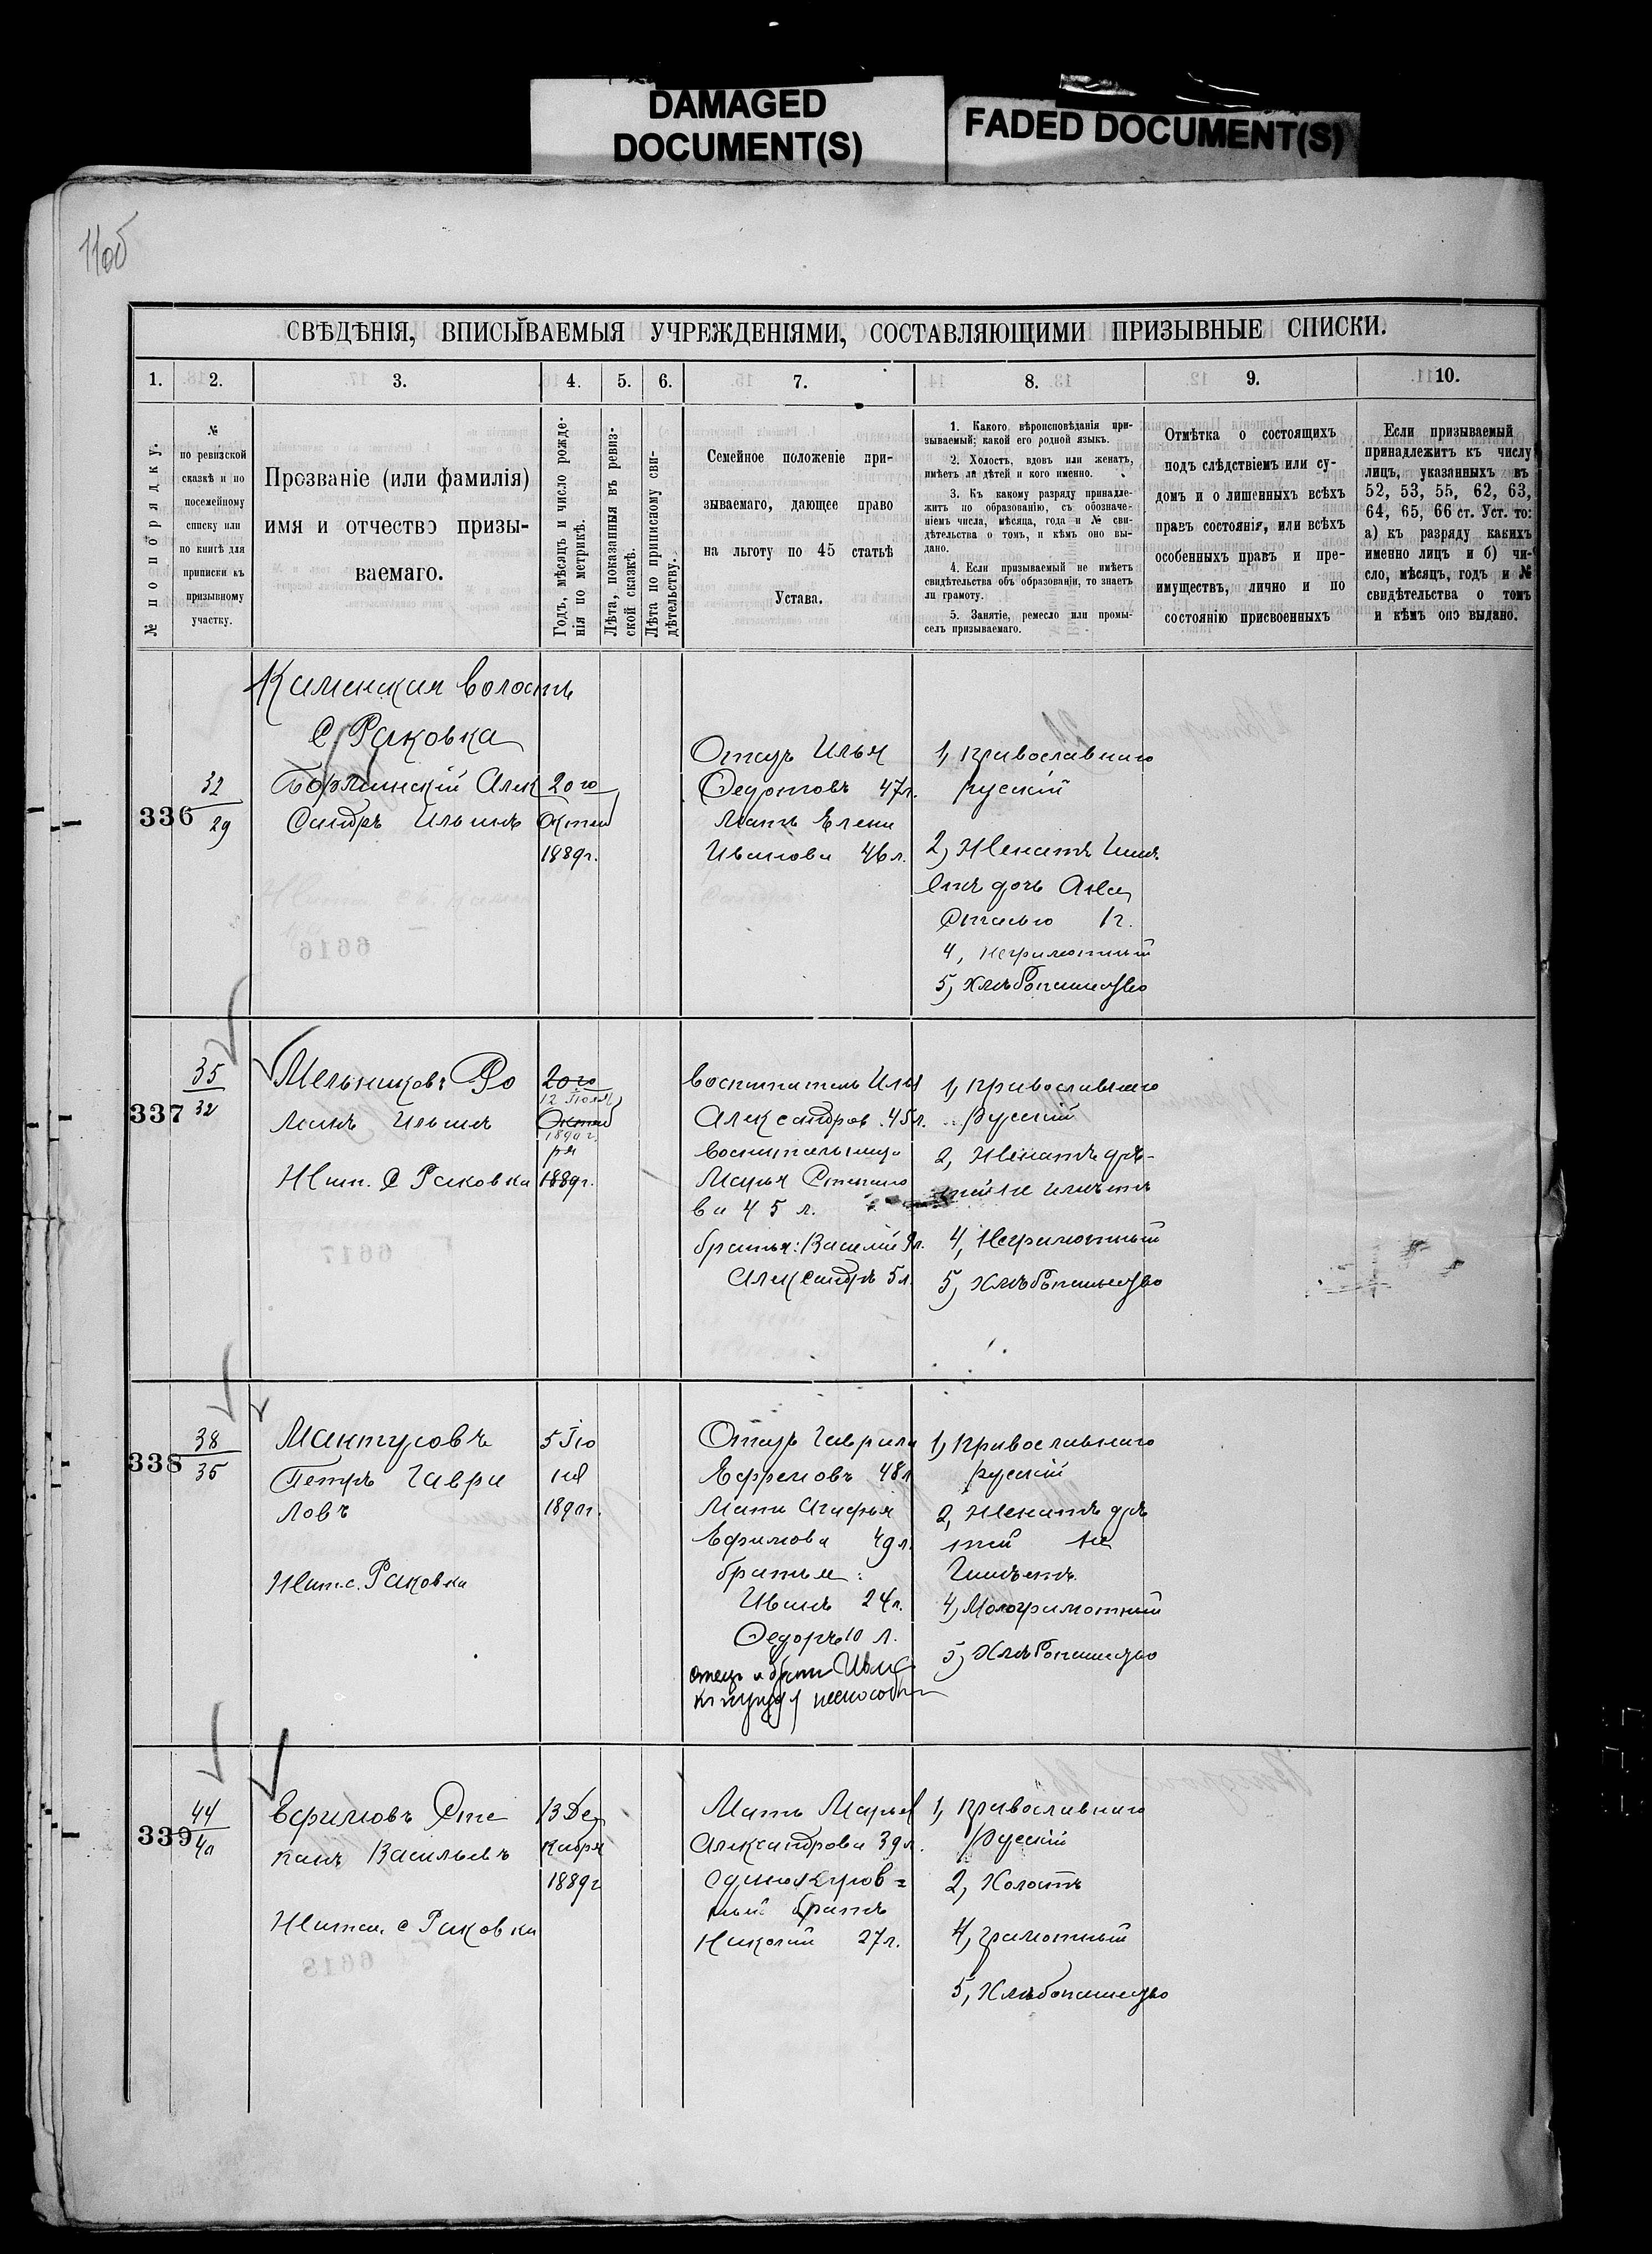 DAMAGED
DOCUMENT(S)
FADED DOCUMENT(S)
11об
СВѢДѢНІЯ, ВПИСЫВАЕМЫЯ УЧРЕЖДЕНІЯМИ, СОСТАВЛЯЮЩИМИ ПРИЗЫВНЫЕ СПИСКИ.
1.
2.
3.
4.
5.
6.
7.
8.
9.
10.
№ по порядку.
№
по ревизской
сказкѣ и по
посемейному
списку или
по книгѣ для
приписки къ
призывному
участку.
Прозваніе (или фамилія)
имя и отчество призы-
ваемаго.
Годъ, мѣсяцъ и число рожде-
нія по метрикѣ.
Лѣта, показанныя въ ревиз-
ской сказкѣ.
Лѣта по приписному сви-
дѣтельству.
Семейное положеніе при-
зываемаго, дающее право
на льготу по 45 статьѣ
Устава.
1. Какого вѣроисповѣданія при-
зываемый; какой его родной языкъ.
2. Холостъ, вдовъ или женатъ,
имѣетъ ли дѣтей и кого именно.
3. Къ какому разряду принадле-
житъ по образованію, съ обозначе-
ніемъ числа, мѣсяца, года и № сви-
дѣтельства о томъ, и кѣмъ оно вы-
дано.
4. Если призываемый не имѣетъ
свидѣтельства объ образованіи, то знаетъ
ли грамоту.
5. Занятіе, ремесло или промы-
селъ призываемаго.
Отмѣтка о состоящихъ
подъ слѣдствіемъ или су-
домъ и о лишенныхъ всѣхъ
правъ состоянія, или всѣхъ
особенныхъ правъ и пре-
имуществъ, лично и по
состоянію присвоенныхъ
Если призываемый
принадлежитъ къ числу
лицъ, указанныхъ въ
52, 53, 55, 62, 63,
64, 65, 66 ст. Уст. то:
а) къ разряду какихъ
именно лицъ и б) чи-
сло, мѣсяцъ, годъ и №
свидѣтельства о томъ
и кѣмъ оно выдано.
Каменская волость
С Раковка
336
32
29
Алек
сандръ Ильинъ
20 го
Октяб
1889г.
Отецъ Илья
Федотовъ 47л.
Мать Елена
Иванова 46л.
1, православнаго
русскій
2, Женатъ имѣ
етъ дочь Ана
стасью 1г.
4, неграмотный
5, Хлѣбопашество
337
35
32
Мельниковъ Ро
манъ Ильинъ
Жит. С Раковка
20го
12 Іюля
Октяб
1890г.
ря
1889г.
воспитатель Илья
Александров. 45л.
воспитательница
Марья Степано
ва 45 л.
братья: Василій 9л.
Александръ 5л.
1, православнаго
русскій
2, Женатъ дѣ-
тей не имѣетъ
4, Неграмотный
5, Хлѣбопашество
338
38
35
Мантуровъ
Петръ Гаври
ловъ
Жит. с. Раковка
5 Iю
ня
1890г.
Отецъ Гаврила
Ефремовъ 48л
Мать Агафья
Ефимова 49л.
братья:
Иванъ 24л.
Федоръ 10 л.
отецъ и братъ Иванъ
къ труду неспособны
1, православнаго
русскій
2, Женатъ дѣ
тей не
имѣетъ.
4, Малограмотный
5, Хлѣбопашество
339
44
40
Ефимовъ Сте
панъ Васильевъ
Жител. с Раковка
13 Де
кабря
1889г
Мать Марья
Александрова 39л.
единокров=
ный братъ
Николай 27л.
1, православнаго
русскій
2, Холостъ
4, грамотный
5, Хлѣбопашество